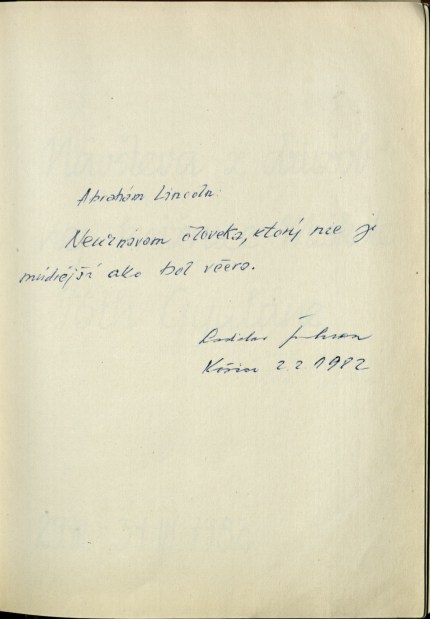 Abrahám Lincoln:
Neuznávam človeka, ktorý nie je
múdrejší ako bol včera.
Ladislav
Košice 2.2 1982